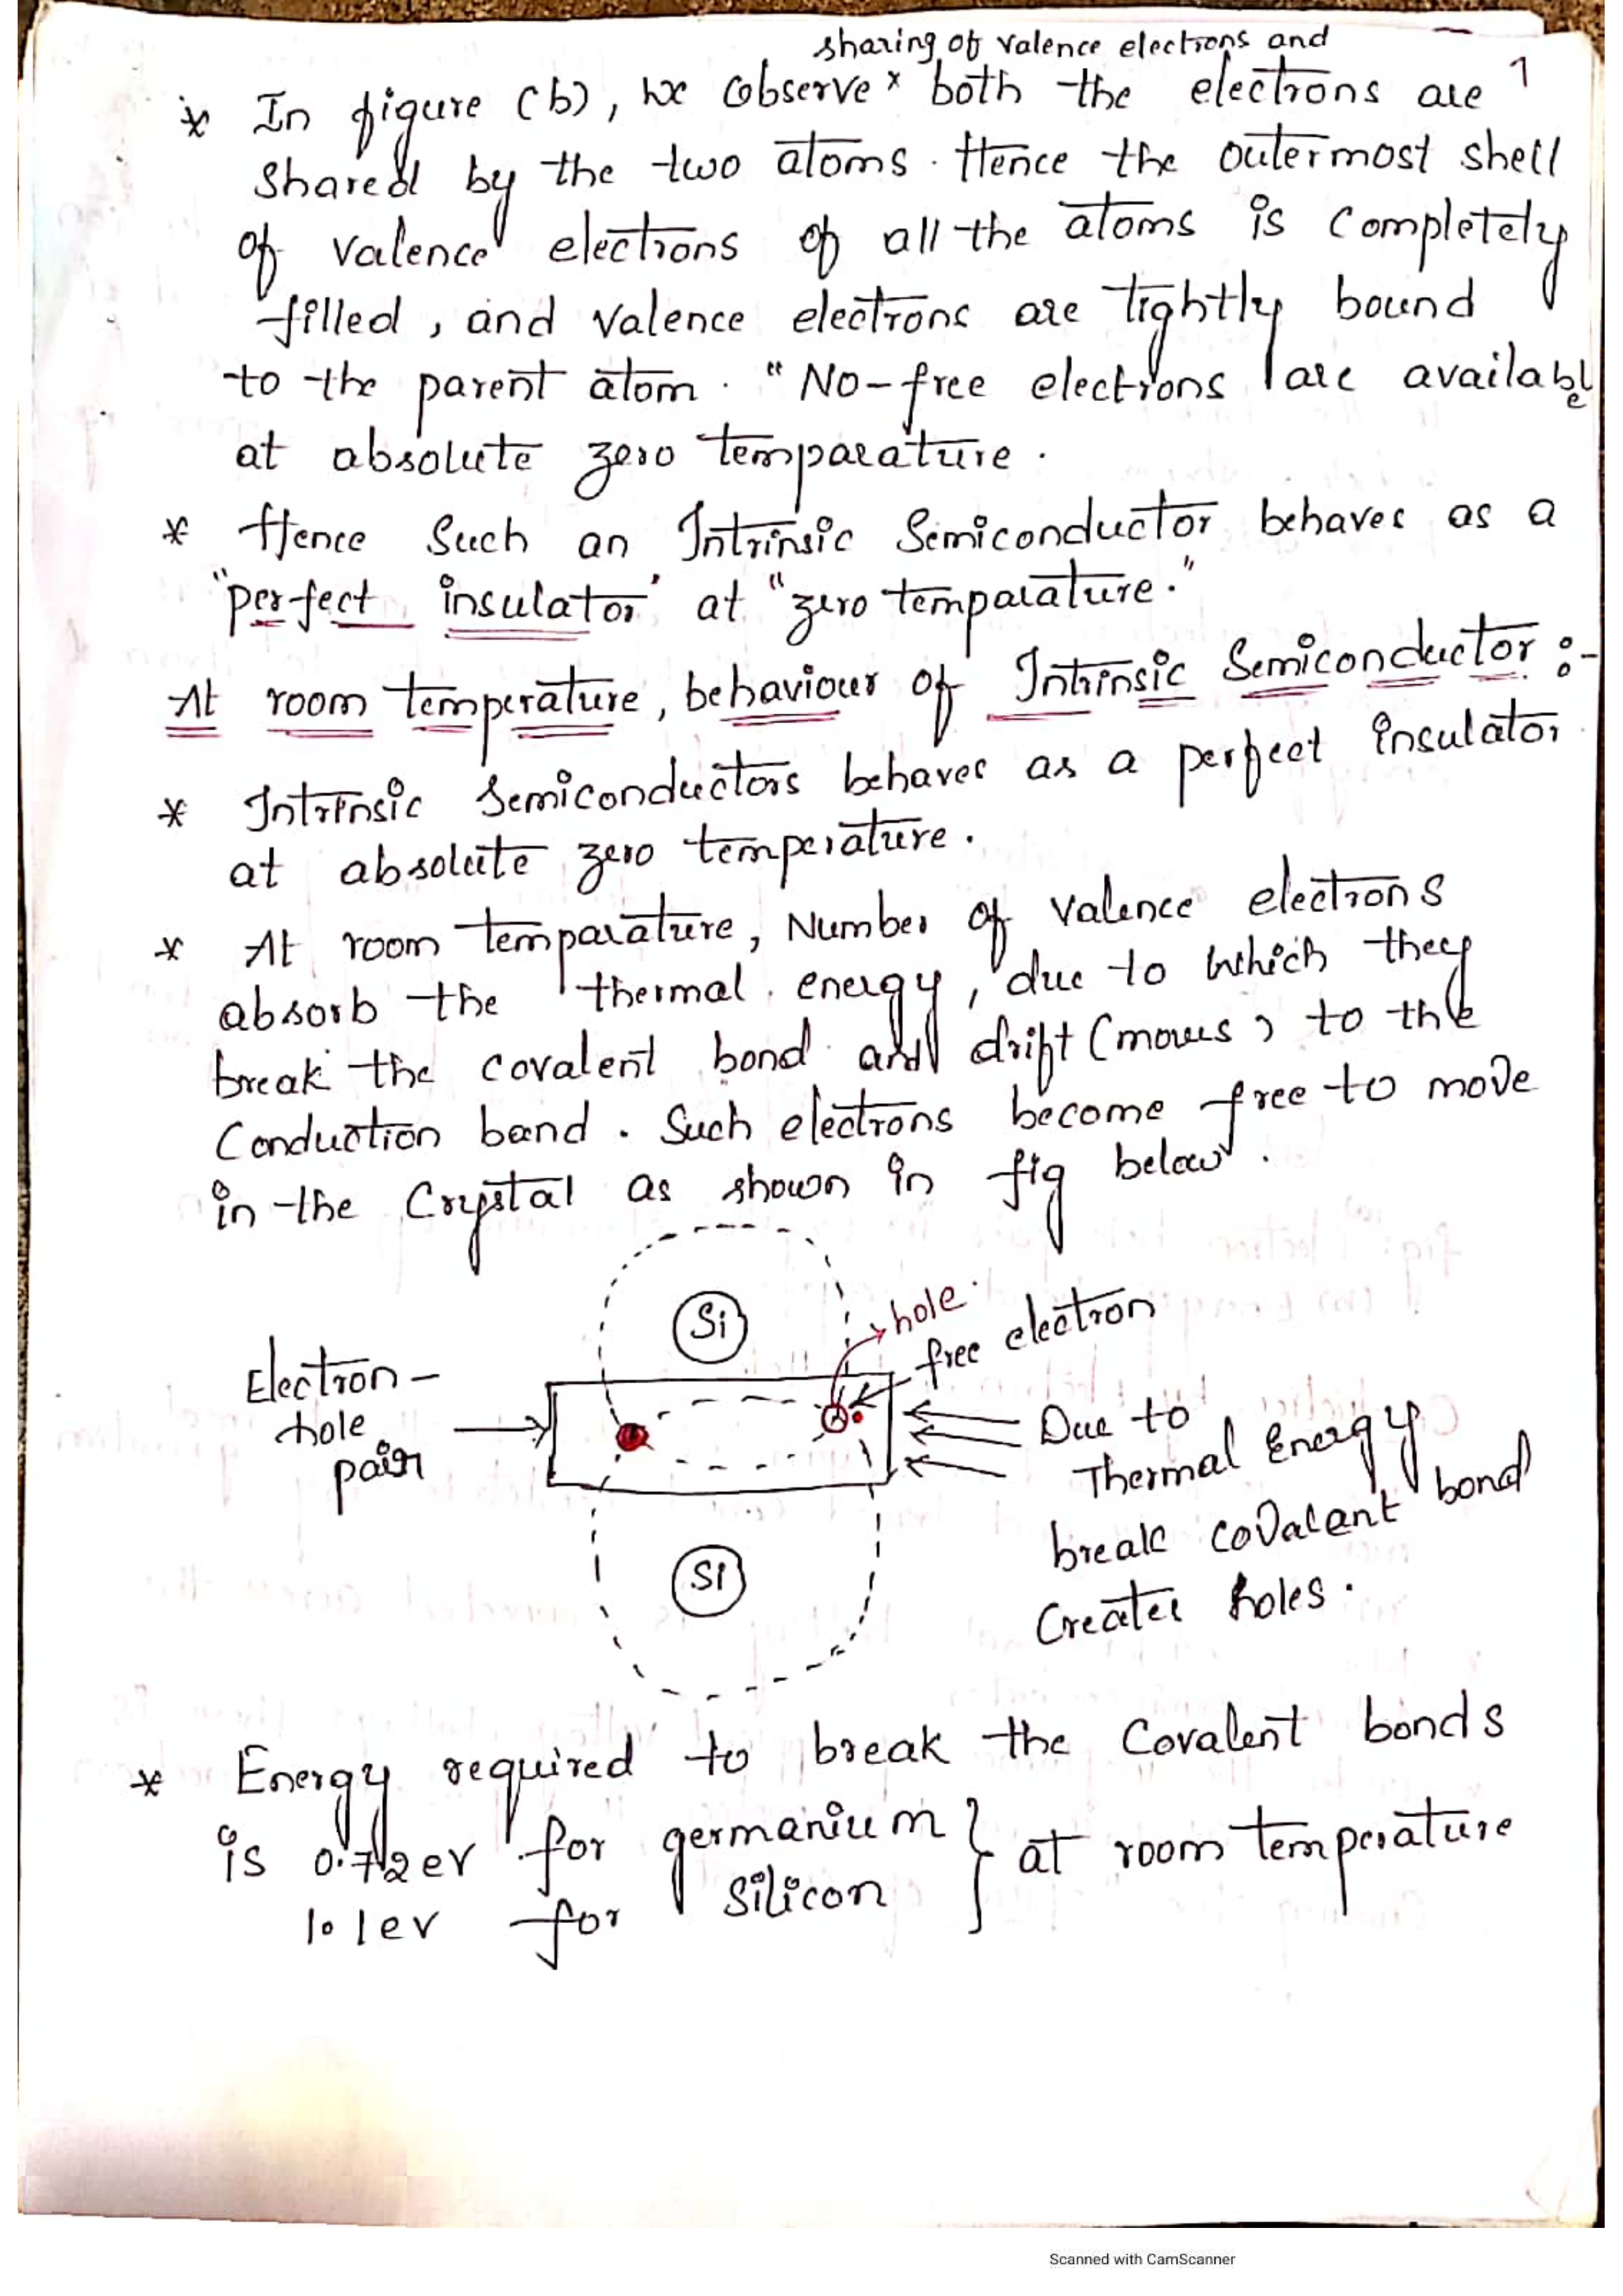 sharing of valence electrons and
1
* In figure (b), we observe x both the electrons are
shared by the two atoms. Hence the outermost shell
of valence electrons of all the atoms is completely
filled, and valence electrons are tightly bound
to the parent atom. "No-free electrons are available
at absolute zero temparature.
* Hence Such an Intrinsic Semiconductor behaves as a
"perfect insulator" at "zero temparature."
At room temperature, behaviour of Intrinsic Semiconductor :-
* Intrinsic Semiconductors behaves as a perfect insulator
at absolute zero temperature.
* At room temparature, Number of valence electrons
absorb the thermal energy, due to which they
break the covalent bond and drift (moves) to the
Conduction band. Such electrons become free to move
in the Crystal as shown in fig below.
Si
hole
free electron
Electron-
hole
pair
Due to
Thermal Energy
break covalant bond
Creates holes.
Si
* Energy required to break the Covalent bonds
is 0.72ev for germanium } at room temperature
1.1ev for silicon
Scanned with CamScanner